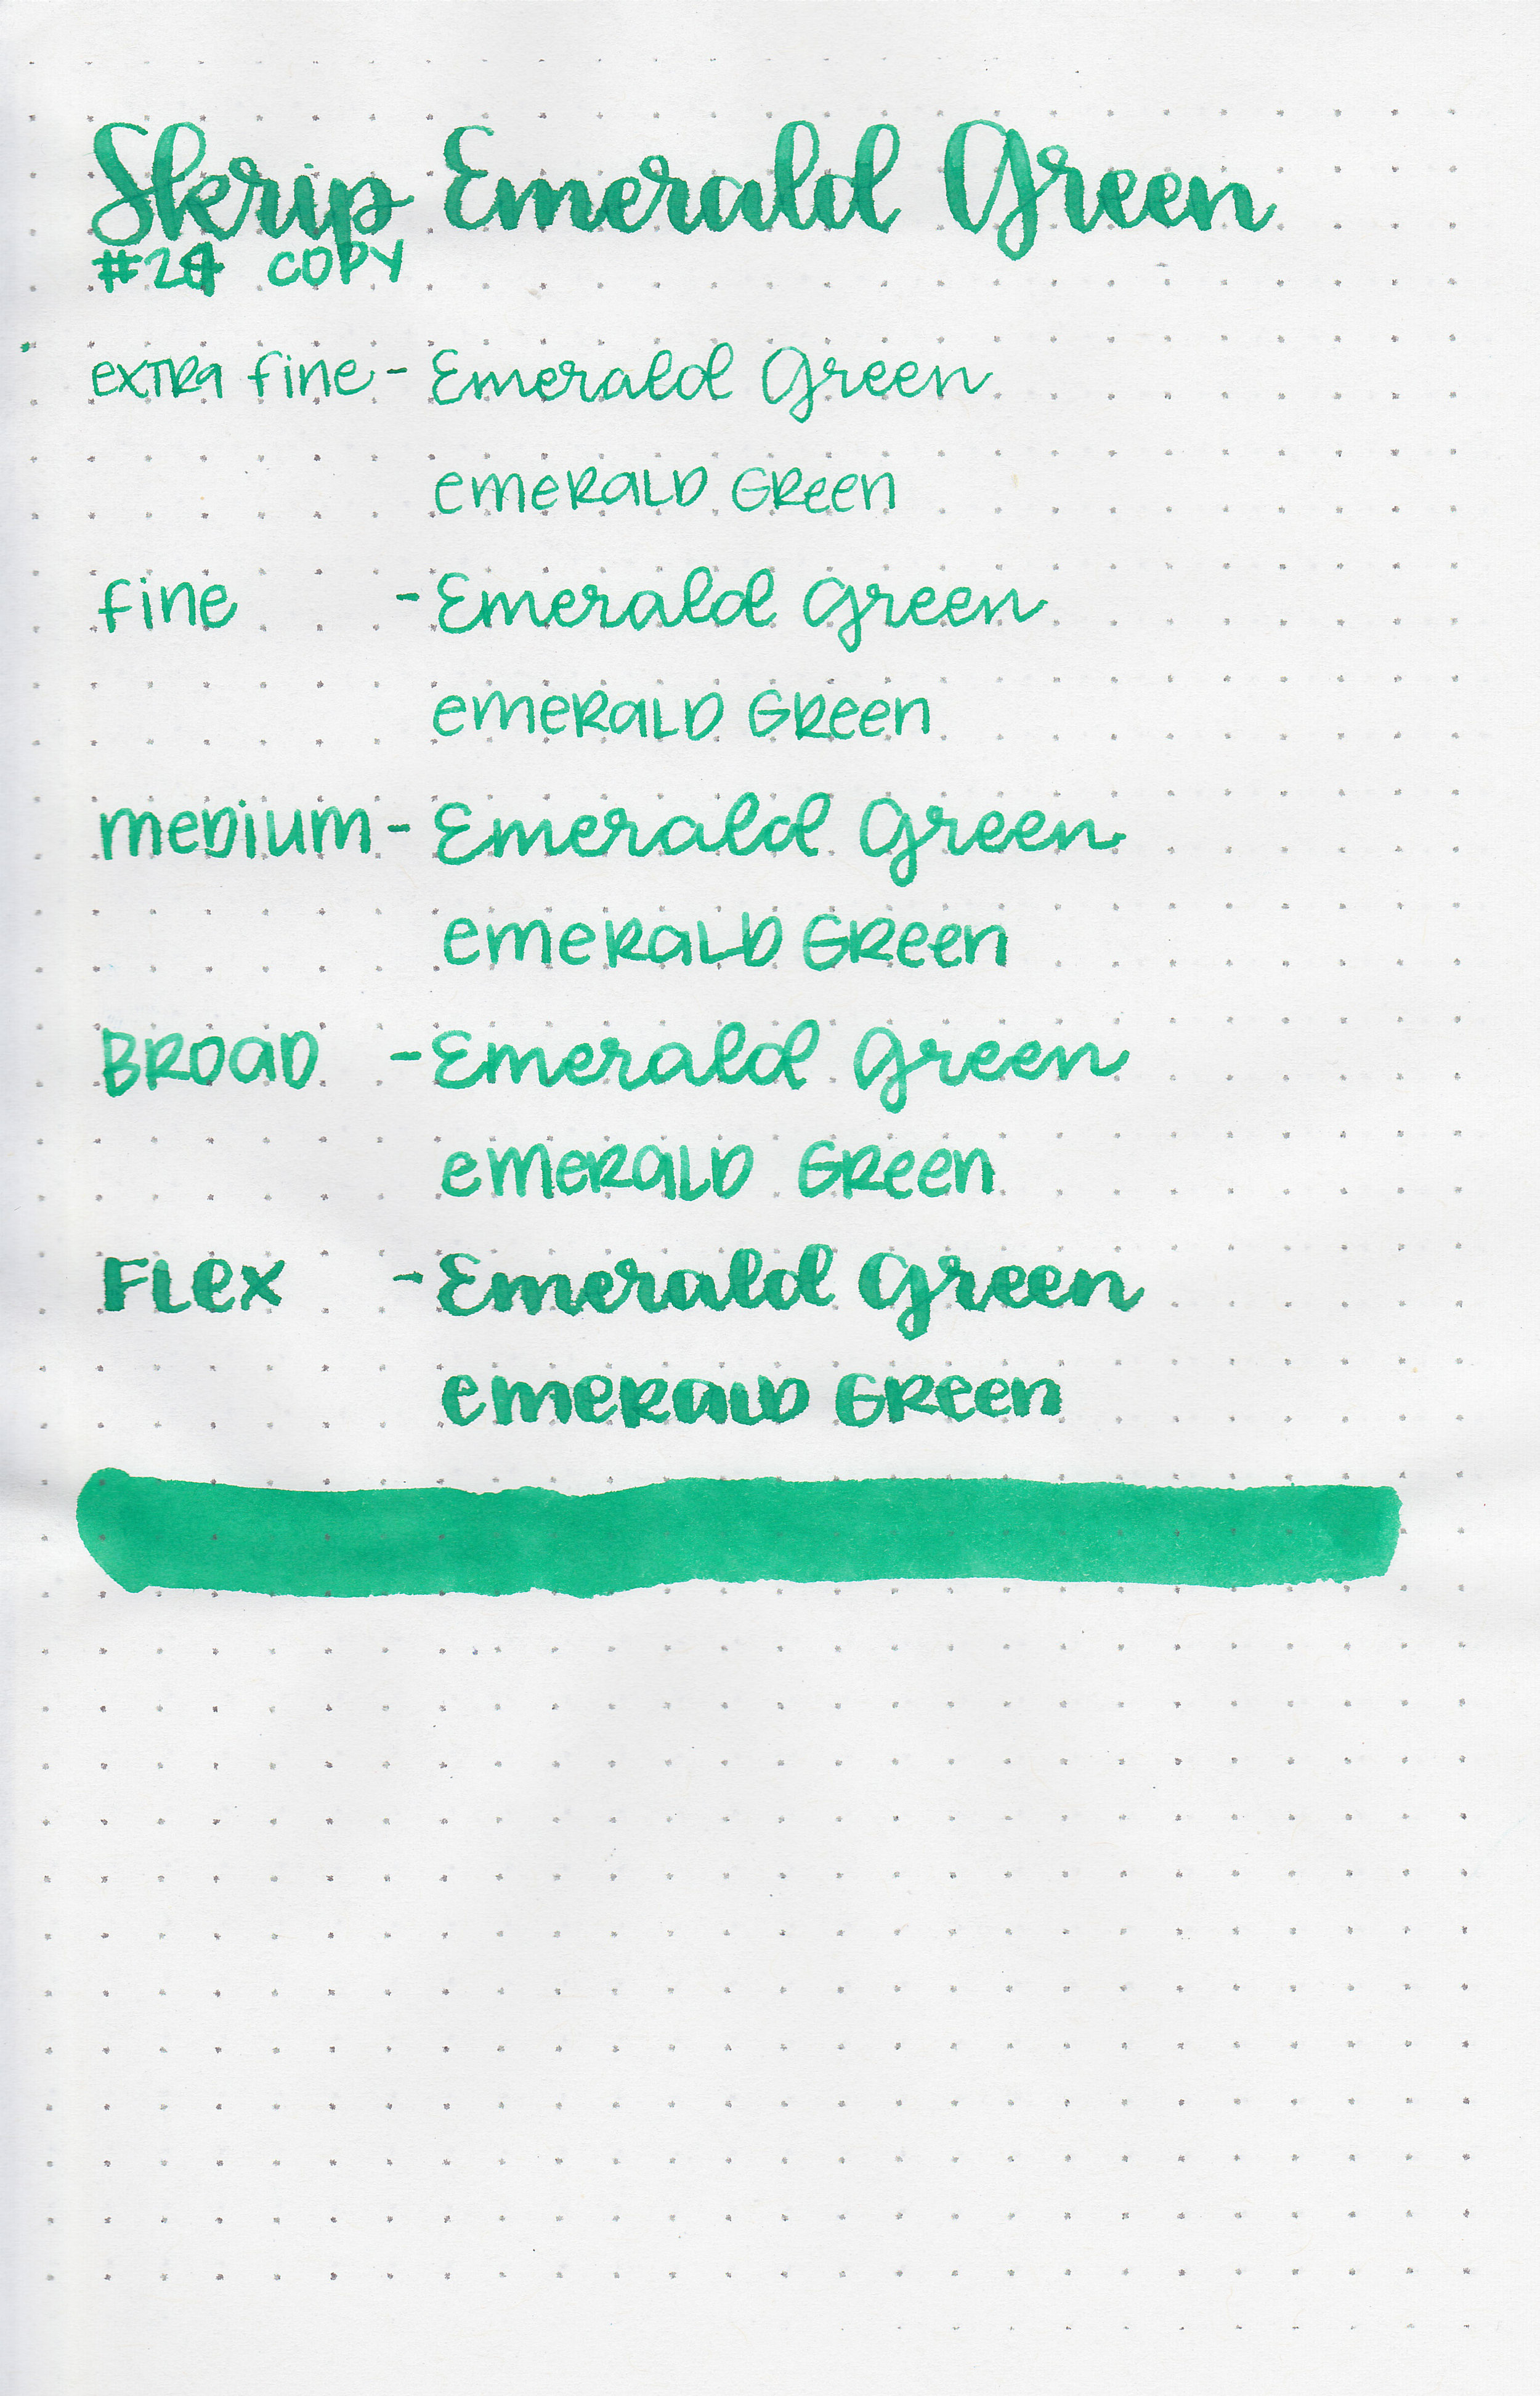 Skrip Emerald Green
#24 COPY
extra fine - Emerald Green
emerald Green
fine - Emerald Green
emerald Green
medium - Emerald Green
emerald Green
Broad - Emerald Green
emerald Green
Flex - Emerald Green
emerald Green